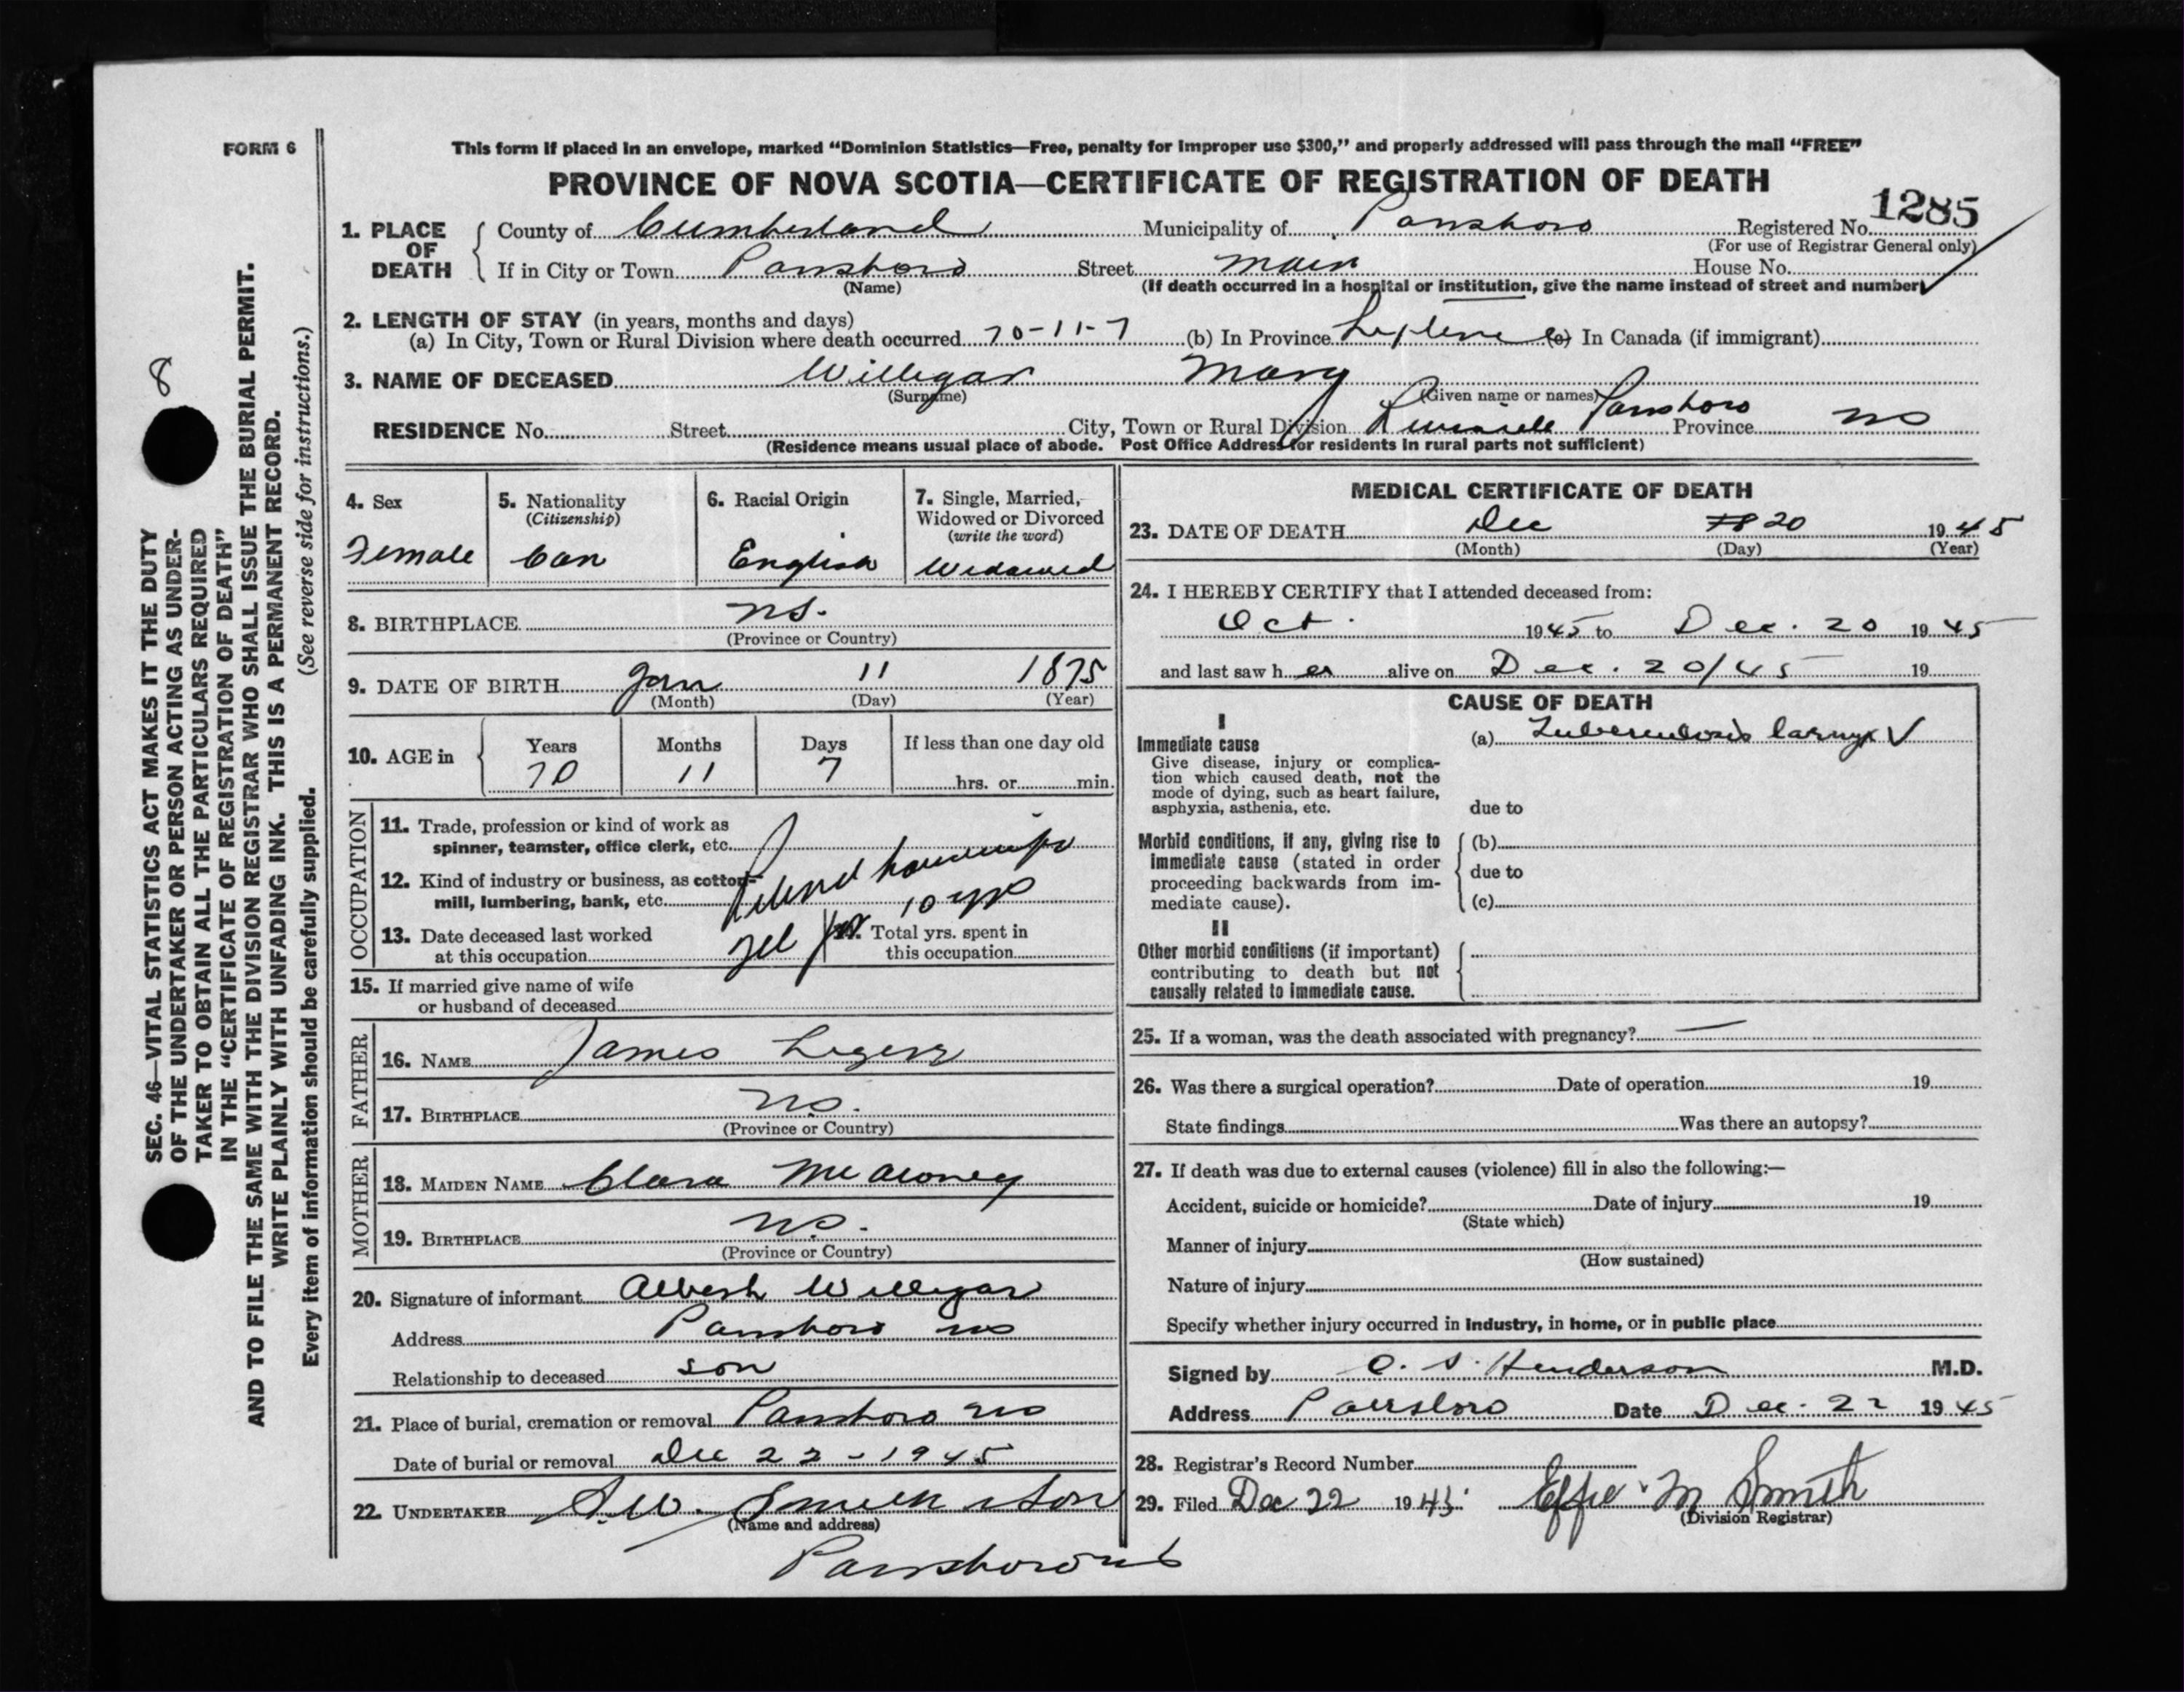 FORM 6
This form if placed in an envelope, marked “Dominion Statistics—Free, penalty for improper use $300,” and properly addressed will pass through the mail “FREE”
PROVINCE OF NOVA SCOTIA—CERTIFICATE OF REGISTRATION OF DEATH
1285
1. PLACE OF DEATH
County of Cumberland Municipality of Parrsboro Registered No.
(For use of Registrar General only)
If in City or Town Parrsboro Street Main House No.
(Name) (If death occurred in a hospital or institution, give the name instead of street and number)
2. LENGTH OF STAY (in years, months and days)
(a) In City, Town or Rural Division where death occurred 70-11-7 (b) In Province Lifetime (c) In Canada (if immigrant)
3. NAME OF DECEASED Willigar Mary
(Surname) (Given name or names)
RESIDENCE No. Street City, Town or Rural Division Parrsboro Province NS
(Residence means usual place of abode. Post Office Address for residents in rural parts not sufficient)
4. Sex
Female
5. Nationality
(Citizenship)
Can
6. Racial Origin
English
7. Single, Married,
Widowed or Divorced
(write the word)
Widowed
8. BIRTHPLACE NS.
(Province or Country)
9. DATE OF BIRTH Jan 11 1875
(Month) (Day) (Year)
10. AGE in
Years Months Days If less than one day old
70 11 7 hrs. or min.
OCCUPATION
11. Trade, profession or kind of work as
spinner, teamster, office clerk, etc.
Retired housewife
12. Kind of industry or business, as cotton-
mill, lumbering, bank, etc.
10 yrs
13. Date deceased last worked
at this occupation
14. Total yrs. spent in
this occupation
15. If married give name of wife
or husband of deceased
FATHER
16. NAME James
17. BIRTHPLACE NS.
(Province or Country)
MOTHER
18. MAIDEN NAME Clara McAloney
19. BIRTHPLACE NS.
(Province or Country)
20. Signature of informant Albert Willigar
Address Parrsboro NS
Relationship to deceased son
21. Place of burial, cremation or removal Parrsboro NS
Date of burial or removal Dec 22-1945
22. UNDERTAKER S.W. Smith & Son
(Name and address)
Parrsboro NS
MEDICAL CERTIFICATE OF DEATH
23. DATE OF DEATH Dec 18 20 1945
(Month) (Day) (Year)
24. I HEREBY CERTIFY that I attended deceased from:
Oct. 1945 to Dec. 20 1945
and last saw her alive on Dec. 20/45 19
CAUSE OF DEATH
I
Immediate cause
Give disease, injury or complica-
tion which caused death, not the
mode of dying, such as heart failure,
asphyxia, asthenia, etc.
(a) Tuberculosis larynx ✓
due to
Morbid conditions, if any, giving rise to
immediate cause (stated in order
proceeding backwards from im-
mediate cause).
(b)
due to
(c)
II
Other morbid conditions (if important)
contributing to death but not
causally related to immediate cause.
25. If a woman, was the death associated with pregnancy? —
26. Was there a surgical operation? Date of operation 19
State findings Was there an autopsy?
27. If death was due to external causes (violence) fill in also the following:—
Accident, suicide or homicide? Date of injury 19
(State which)
Manner of injury
(How sustained)
Nature of injury
Specify whether injury occurred in industry, in home, or in public place
Signed by O. S. Henderson M.D.
Address Parrsboro Date Dec. 22 1945
28. Registrar's Record Number
29. Filed Dec 22 1945 Effie M Smith
(Division Registrar)
8
SEC. 46—VITAL STATISTICS ACT MAKES IT THE DUTY
OF THE UNDERTAKER OR PERSON ACTING AS UNDER-
TAKER TO OBTAIN ALL THE PARTICULARS REQUIRED
IN THE “CERTIFICATE OF REGISTRATION OF DEATH”
AND TO FILE THE SAME WITH THE DIVISION REGISTRAR WHO SHALL ISSUE THE BURIAL PERMIT.
WRITE PLAINLY WITH UNFADING INK. THIS IS A PERMANENT RECORD.
Every item of information should be carefully supplied. (See reverse side for instructions.)